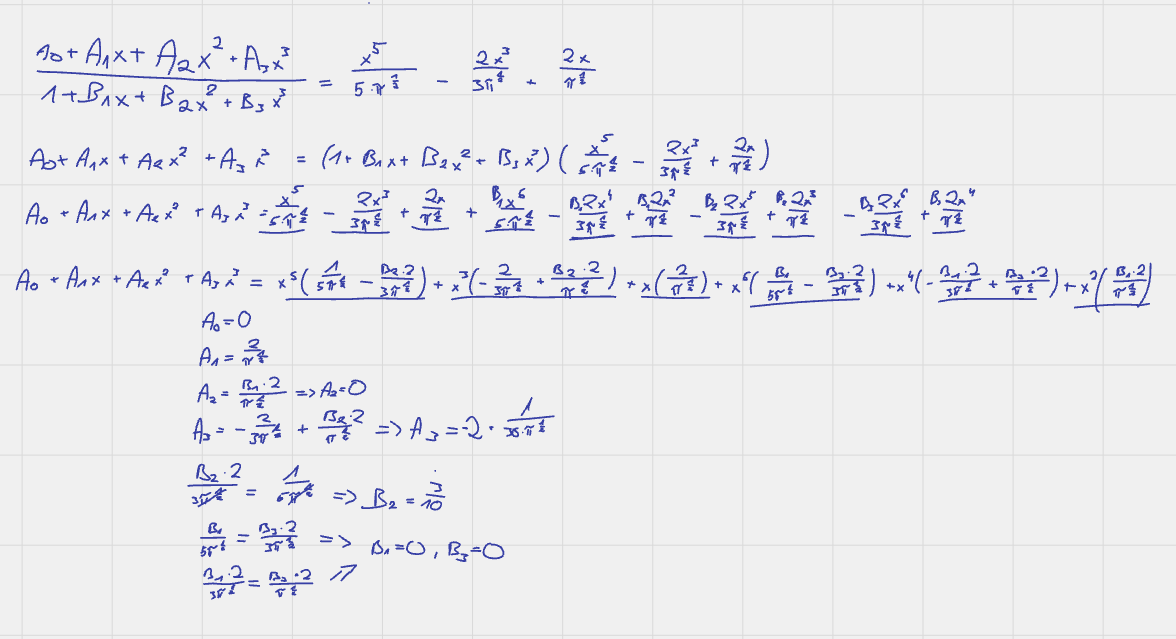 (A₀ + A₁x + A₂x² + A₃x³)/(1 + B₁x + B₂x² + B₃x³) = x⁵/(5·π^(1/2)) − 2x³/(3π^(1/2)) + 2x/π^(1/2)
A₀ + A₁x + A₂x² + A₃x³ = (1 + B₁x + B₂x² + B₃x³)(x⁵/(5·π^(1/2)) − 2x³/(3π^(1/2)) + 2x/π^(1/2))
A₀ + A₁x + A₂x² + A₃x³ = x⁵/(5·π^(1/2)) − 2x³/(3π^(1/2)) + 2x/π^(1/2) + B₁x⁶/(5·π^(1/2)) − B₁2x⁴/(3π^(1/2)) + B₁2x²/π^(1/2) − B₂2x⁵/(3π^(1/2)) + B₂2x³/π^(1/2) − B₃2x⁶/(3π^(1/2)) + B₃2x⁴/π^(1/2)
A₀ + A₁x + A₂x² + A₃x³ = x⁵(1/(5π^(1/2)) − B₂·2/(3π^(1/2))) + x³(−2/(3π^(1/2)) + B₂·2/π^(1/2)) + x(2/π^(1/2)) + x⁶(B₁/(5π^(1/2)) − B₃·2/(3π^(1/2))) + x⁴(−B₁·2/(3π^(1/2)) + B₃·2/π^(1/2)) + x²(B₁·2/π^(1/2))
A₀ = 0
A₁ = 2/π^(1/2)
A₂ = B₁·2/π^(1/2) => A₂ = 0
A₃ = −2/(3π^(1/2)) + B₂·2/π^(1/2) => A₃ = −2 · 1/(30·π^(1/2))
B₂·2/(3π^(1/2)) = 1/(5π^(1/2)) => B₂ = 3/10
B₁/(5π^(1/2)) = B₃·2/(3π^(1/2)) => B₁ = 0, B₃ = 0
B₁·2/(3π^(1/2)) = B₃·2/π^(1/2)